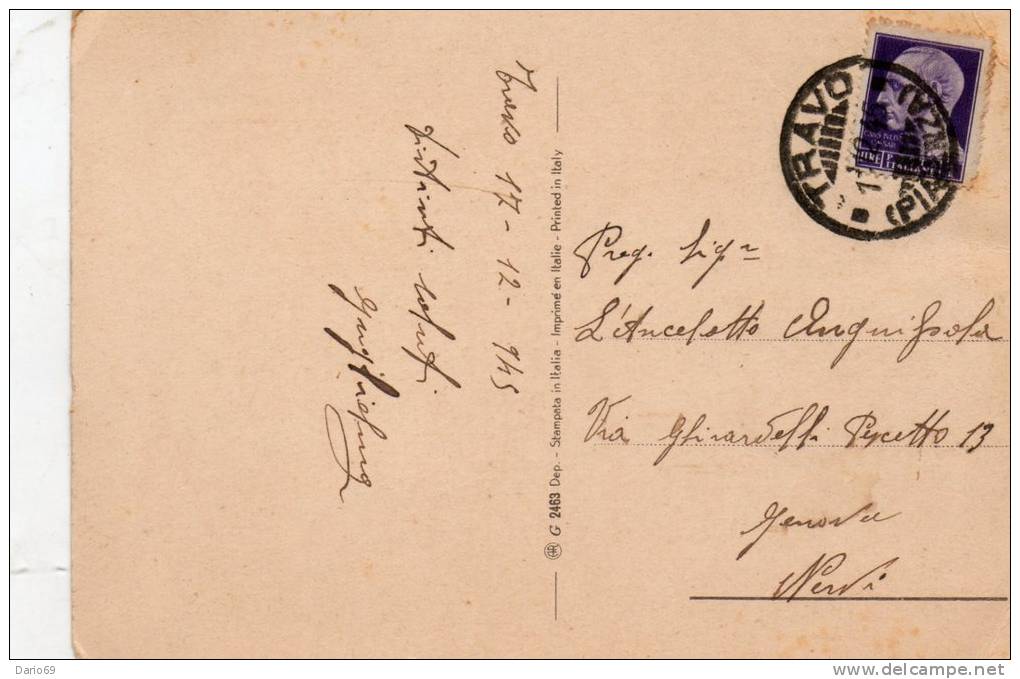 Travo 17-12-945
distinti saluti
Guglielmo
G 2463 Dep. - Stampata in Italia - Imprimé en Italie - Printed in Italy
TRAVO
(PIACENZA)
LIRE
Preg. Sigr
L'Anceletto Anguissola
Via Ghirardelli Pescetto 13
Genova
Nervi
Dario69
delcampe.net